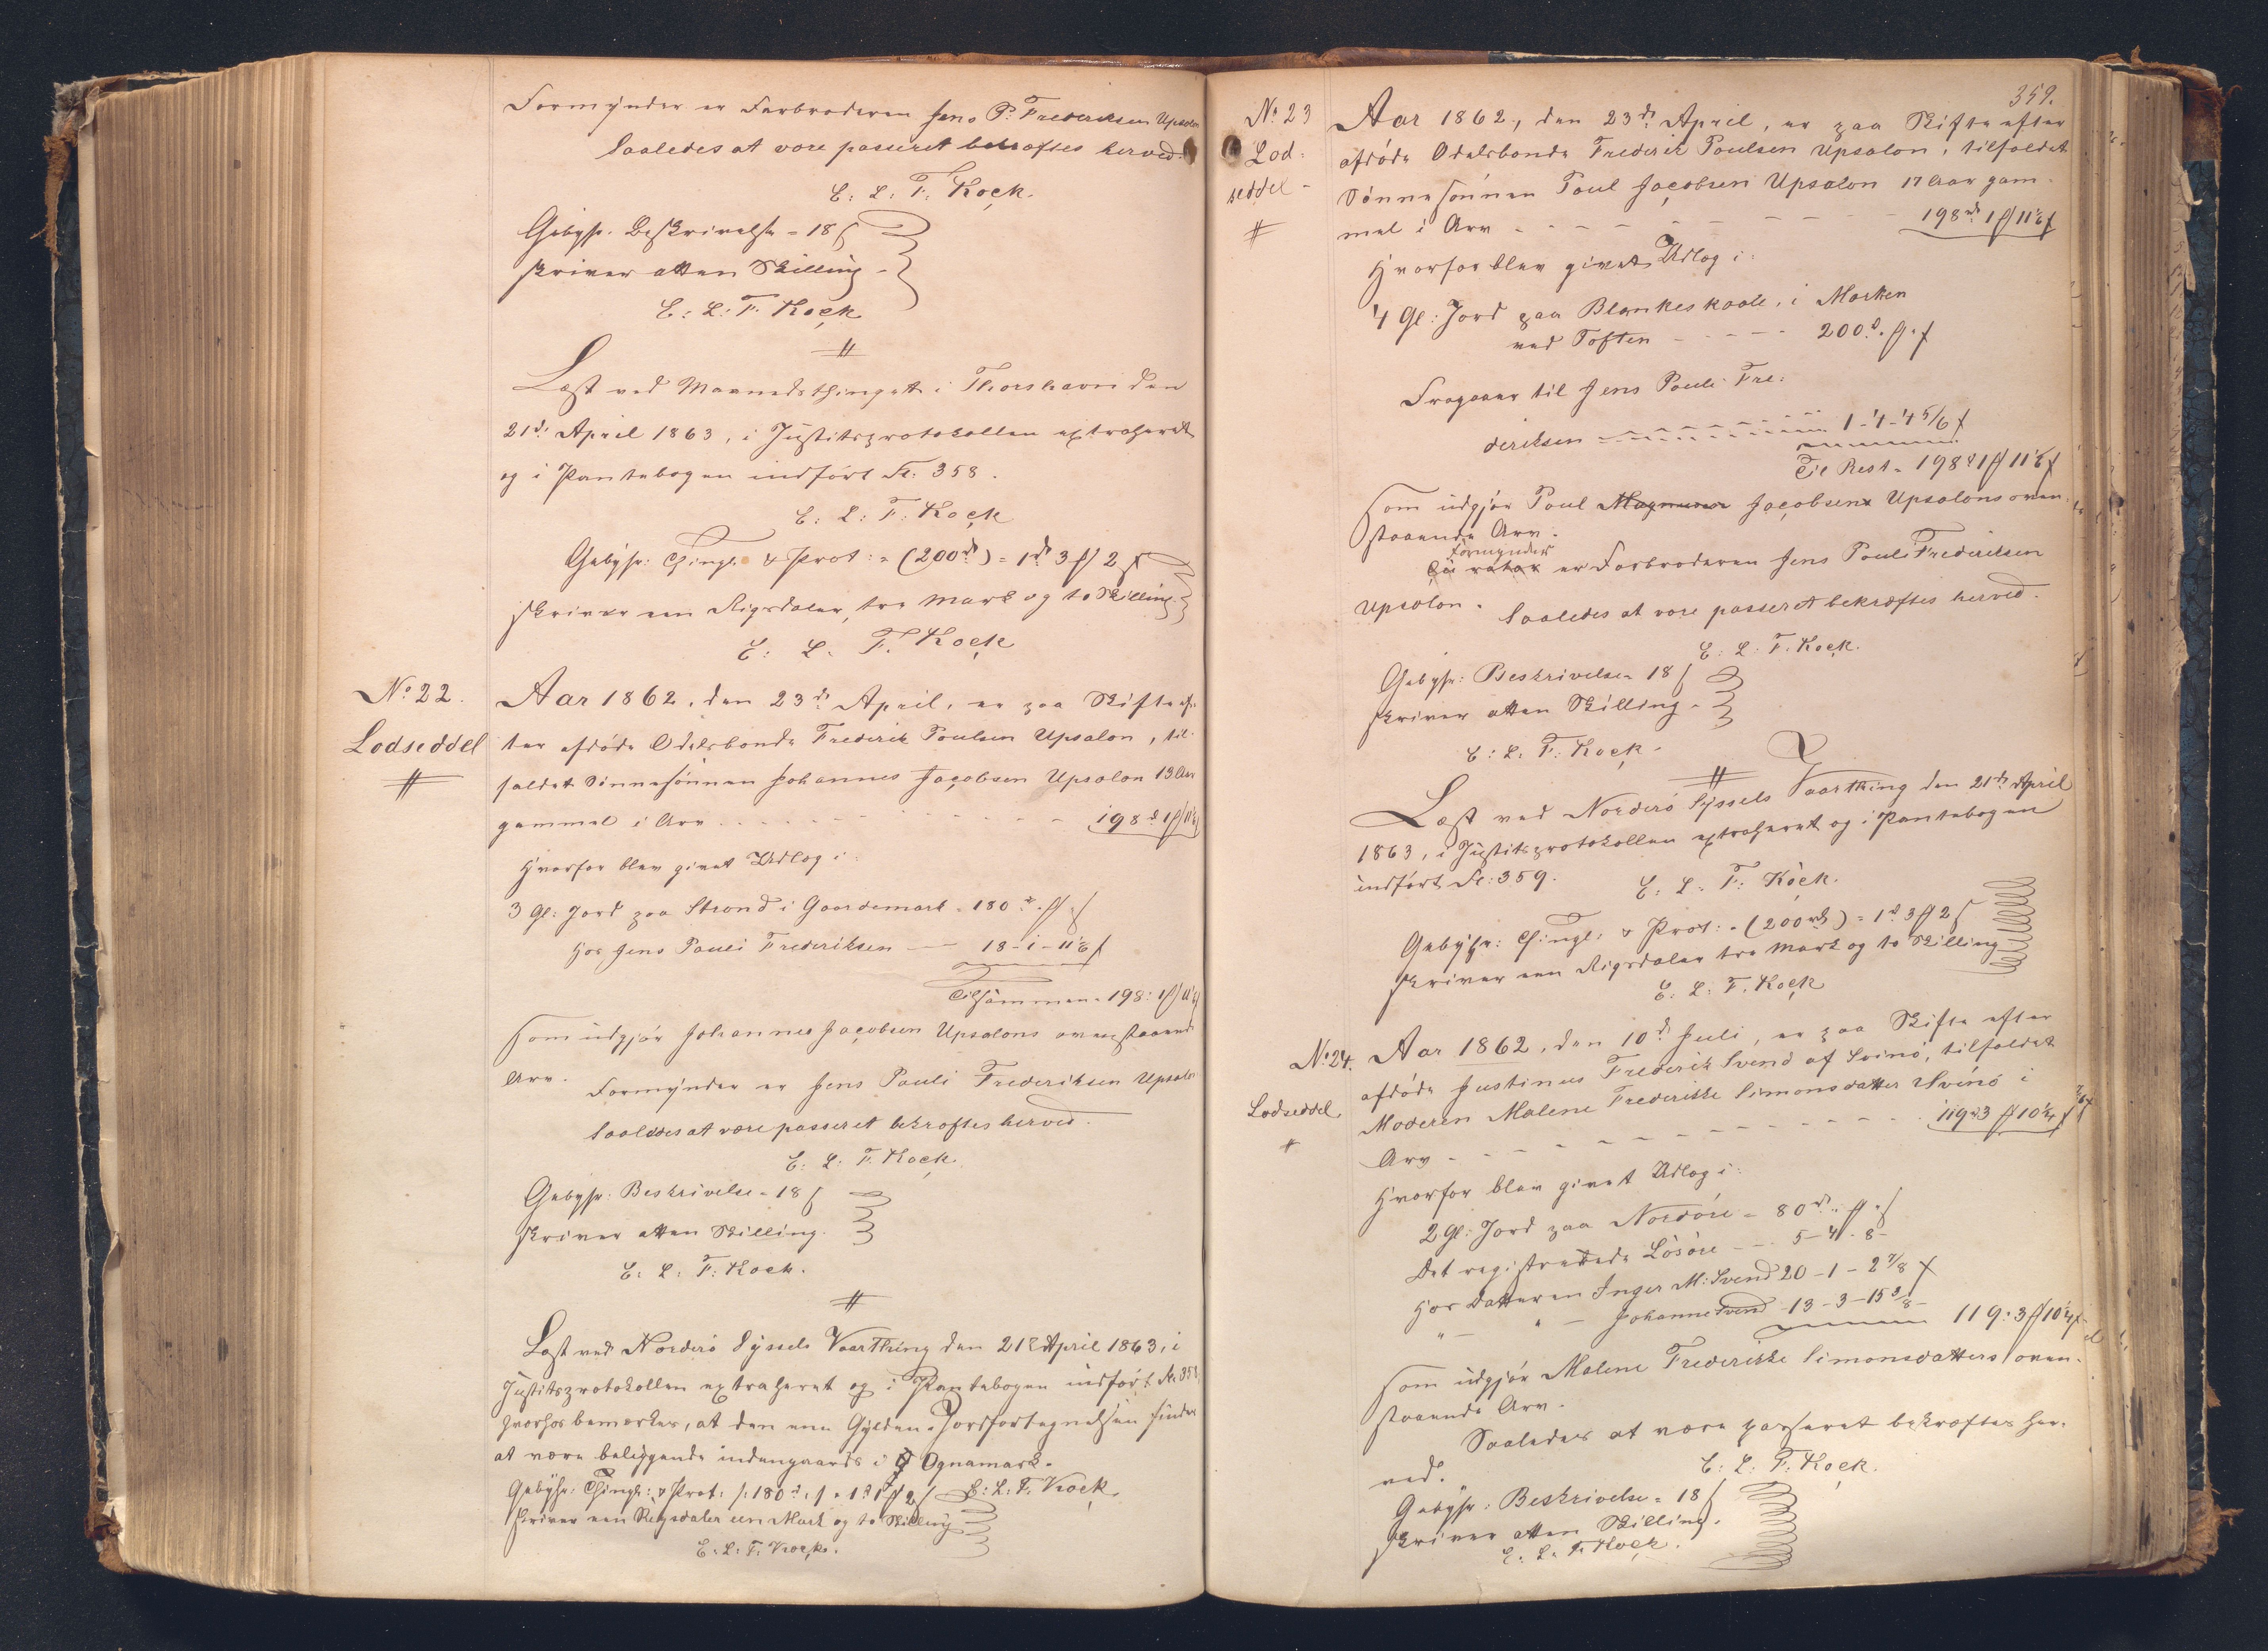 Formynder er Farbroderen Jens P. Frederiksen Upsalon
Saaledes at være passeret bekræftes herved.
E. L. F. Kock.
Gebyhr. Beskrivelse = 18 ß
skriver atten Skilling -
E: L: F. Kock
Læst ved Maanedsthinget i Thorshavn den
21de April 1863, i Justitsprotokollen extraheret
og i Pantebogen indført Fl: 358.
E: L: F: Kock
Gebyhr: Thingl. & Prot: = (200rd) = 1rd 3 ꝳ 2 ß
skriver een Rigsdaler, tre Mark og to Skilling
E: L. F. Kock
No 22.
Lodseddel
Aar 1862, den 23de April, er paa Skifte ef-
ter afdøde Odelsbonde Frederik Poulsen Upsalon, til-
faldet Sønnesønnen Johannes Jacobsen Upsalon 13 Aar
gammel i Arv - - - 198rd 1 ꝳ 11 1/6
Hvorfor blev givet Udlog i:
3 Gl: Jord paa Strond i Gaardemark = 180rd. ꝳ. ß
Hos Jens Pauli Frederiksen — 18 - 1 - 11 1/6 ß
Tilsammen = 198: 1 ꝳ 11 1/6
Som udgjør Johannes Jacobsen Upsalons ovenstaaende
Arv.
Formynder er Jens Pauli Frederiksen Upsalon
Saaledes at være passeret bekræftes herved.
E: L: F. Kock
Gebyhr: Beskrivelse = 18 ß
skriver atten Skilling.
E: L: F: Kock.
Læst ved Norderø Syssels Vaarthing den 21de April 1863, i
Justitsprotokollen extraheret og i Pantebogen indført Fl. 358,
hvorhos bemærkes, at den ene Gylden Jord findes
at være beliggende indengaards i Ognamark.
Gebyhr: Thingl: & Prot: /: 180rd :/ = 1rd 1 ꝳ 2 ß E: L: F. Kock.
skriver een Rigsdaler een Mark og to Skilling
E: L: F. Kock.
359.
No 23
Lod-
seddel -
Aar 1862, den 23de April, er paa Skifte efter
afdøde Odelsbonde Frederik Poulsen Upsalon, tilfaldet
Sønnesønnen Poul Jacobsen Upsalon 17 Aar gam-
mel i Arv - - - 198rd 1 ꝳ 11 1/6 ß
Hvorfor blev givet Udlog i:
4 Gl: Jord paa Blankeskaale, i Marken
ved Toften - - - 200rd. ꝳ. ß
Fragaaer til Jens Pauli Fre-
deriksen - - - 1 - 4 - 4 5/6 ß
Til Rest = 198rd 1 ꝳ 11 1/6 ß
Som udgjør Poul Magnussen Jacobsens Upsalons oven-
staaende Arv.
Formynder
Curator er Farbroderen Jens Pauli Frederiksen
Upsalon. Saaledes at være passeret bekræftes herved.
E: L: F. Kock.
Gebyhr: Beskrivelse = 18 ß
skriver atten Skilling -
E: L: F: Kock -
Læst ved Norderø Syssels Vaarthing den 21de April
1863, i Justitsprotokollen extraheret og i Pantebogen
indført Fl: 359.
E: L: F: Kock.
Gebyhr: Thingl: & Prot: = (200rd) = 1rd 3 ꝳ 2 ß
skriver een Rigsdaler tre Mark og to Skilling
E: L: F. Kock
No 24.
Lodseddel
Aar 1862, den 10de Juli, er paa Skifte efter
afdøde Justinus Frederik Svend af Svinø, tilfaldet
Moderen Malene Frederikke Simonsdatter Svinø i
Arv - - - 119rd 3 ꝳ 10 1/4 ß
Hvorfor blev givet Udlog i:
2 Gl: Jord paa Nordøre = 80rd. ꝳ. ß
Det registrerede Løsøre — 5 - 4 - 8 -
Hos Datteren Inger M: Svend 20 - 1 - 2 7/8 ß
" — " — Johanne Svend - 13 - 3 - 15 3/8 - 119: 3 ꝳ 10 1/4 ß
Som udgjør Malene Frederikke Simonsdatters oven-
staaende Arv.
Saaledes at være passeret bekræftes her-
ved.
E: L: F: Kock.
Gebyhr: Beskrivelse = 18 ß
skriver atten Skilling.
E: L: F. Kock.